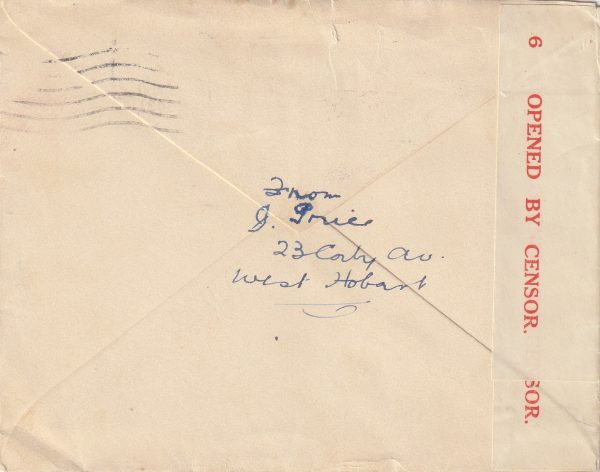 From
J. Price
23 Corby Av.
West Hobart
6 OPENED BY CENSOR.
SOR.